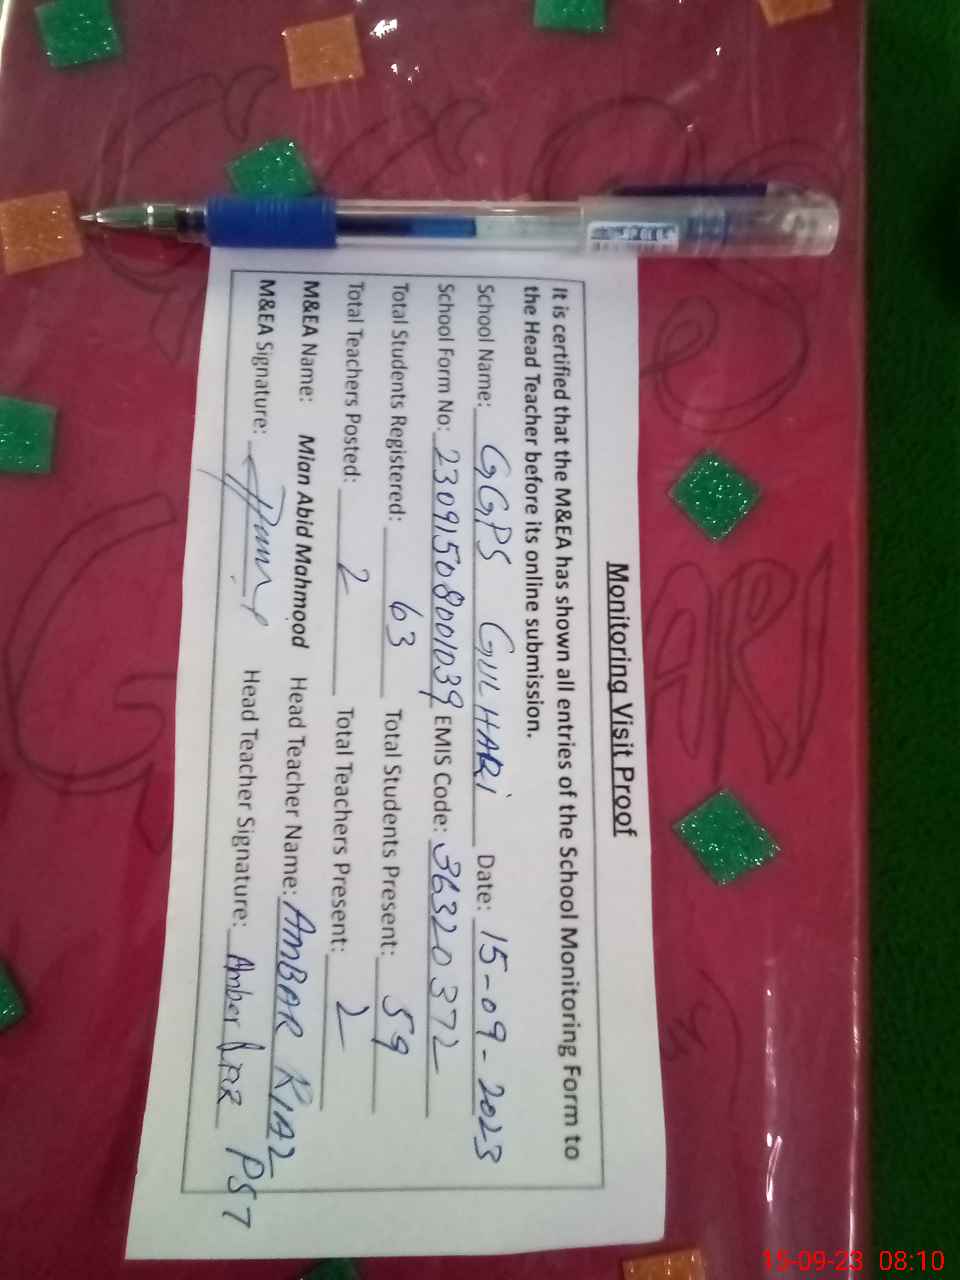 Monitoring Visit Proof
It is certified that the M&EA has shown all entries of the School Monitoring Form to
the Head Teacher before its online submission.
School Name: GGPS GULHARI Date: 15-09-2023
School Form No: 23091508001039 EMIS Code: 36320372
Total Students Registered: 63 Total Students Present: 59
Total Teachers Posted: 2 Total Teachers Present: 2
M&EA Name: Mian Abid Mahmood Head Teacher Name: AMBAR RIAZ
M&EA Signature: Head Teacher Signature: Amber PST
15-09-23 08:10